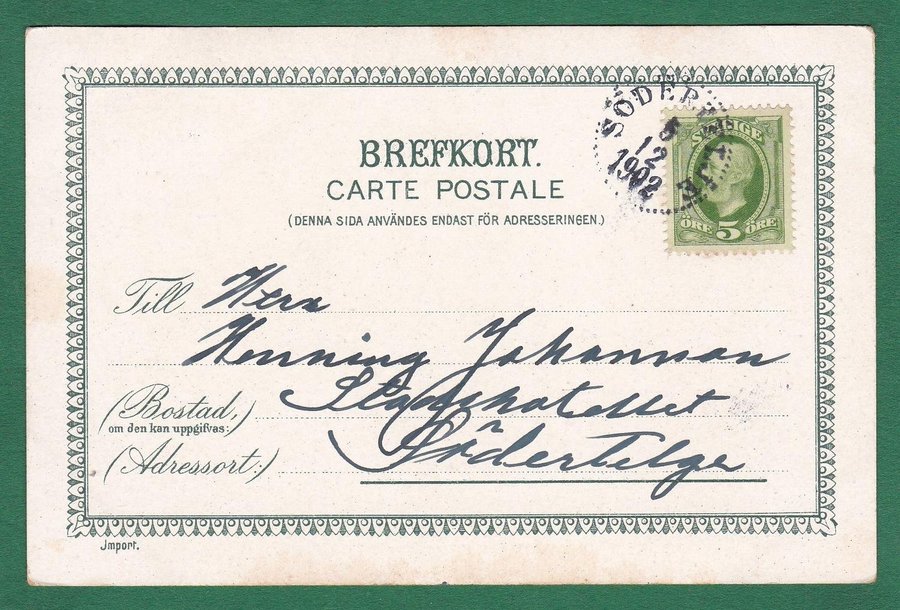 BREFKORT.
CARTE POSTALE
(DENNA SIDA ANVÄNDES ENDAST FÖR ADRESSERINGEN.)
SÖDERTELJE
5
12
1902
SVERIGE
ÖRE 5 ÖRE
Till Herr
Henning Johansson
(Bostad,) Stadshotellet
om den kan uppgifvas:
(Adressort:) Södertelge
Import.